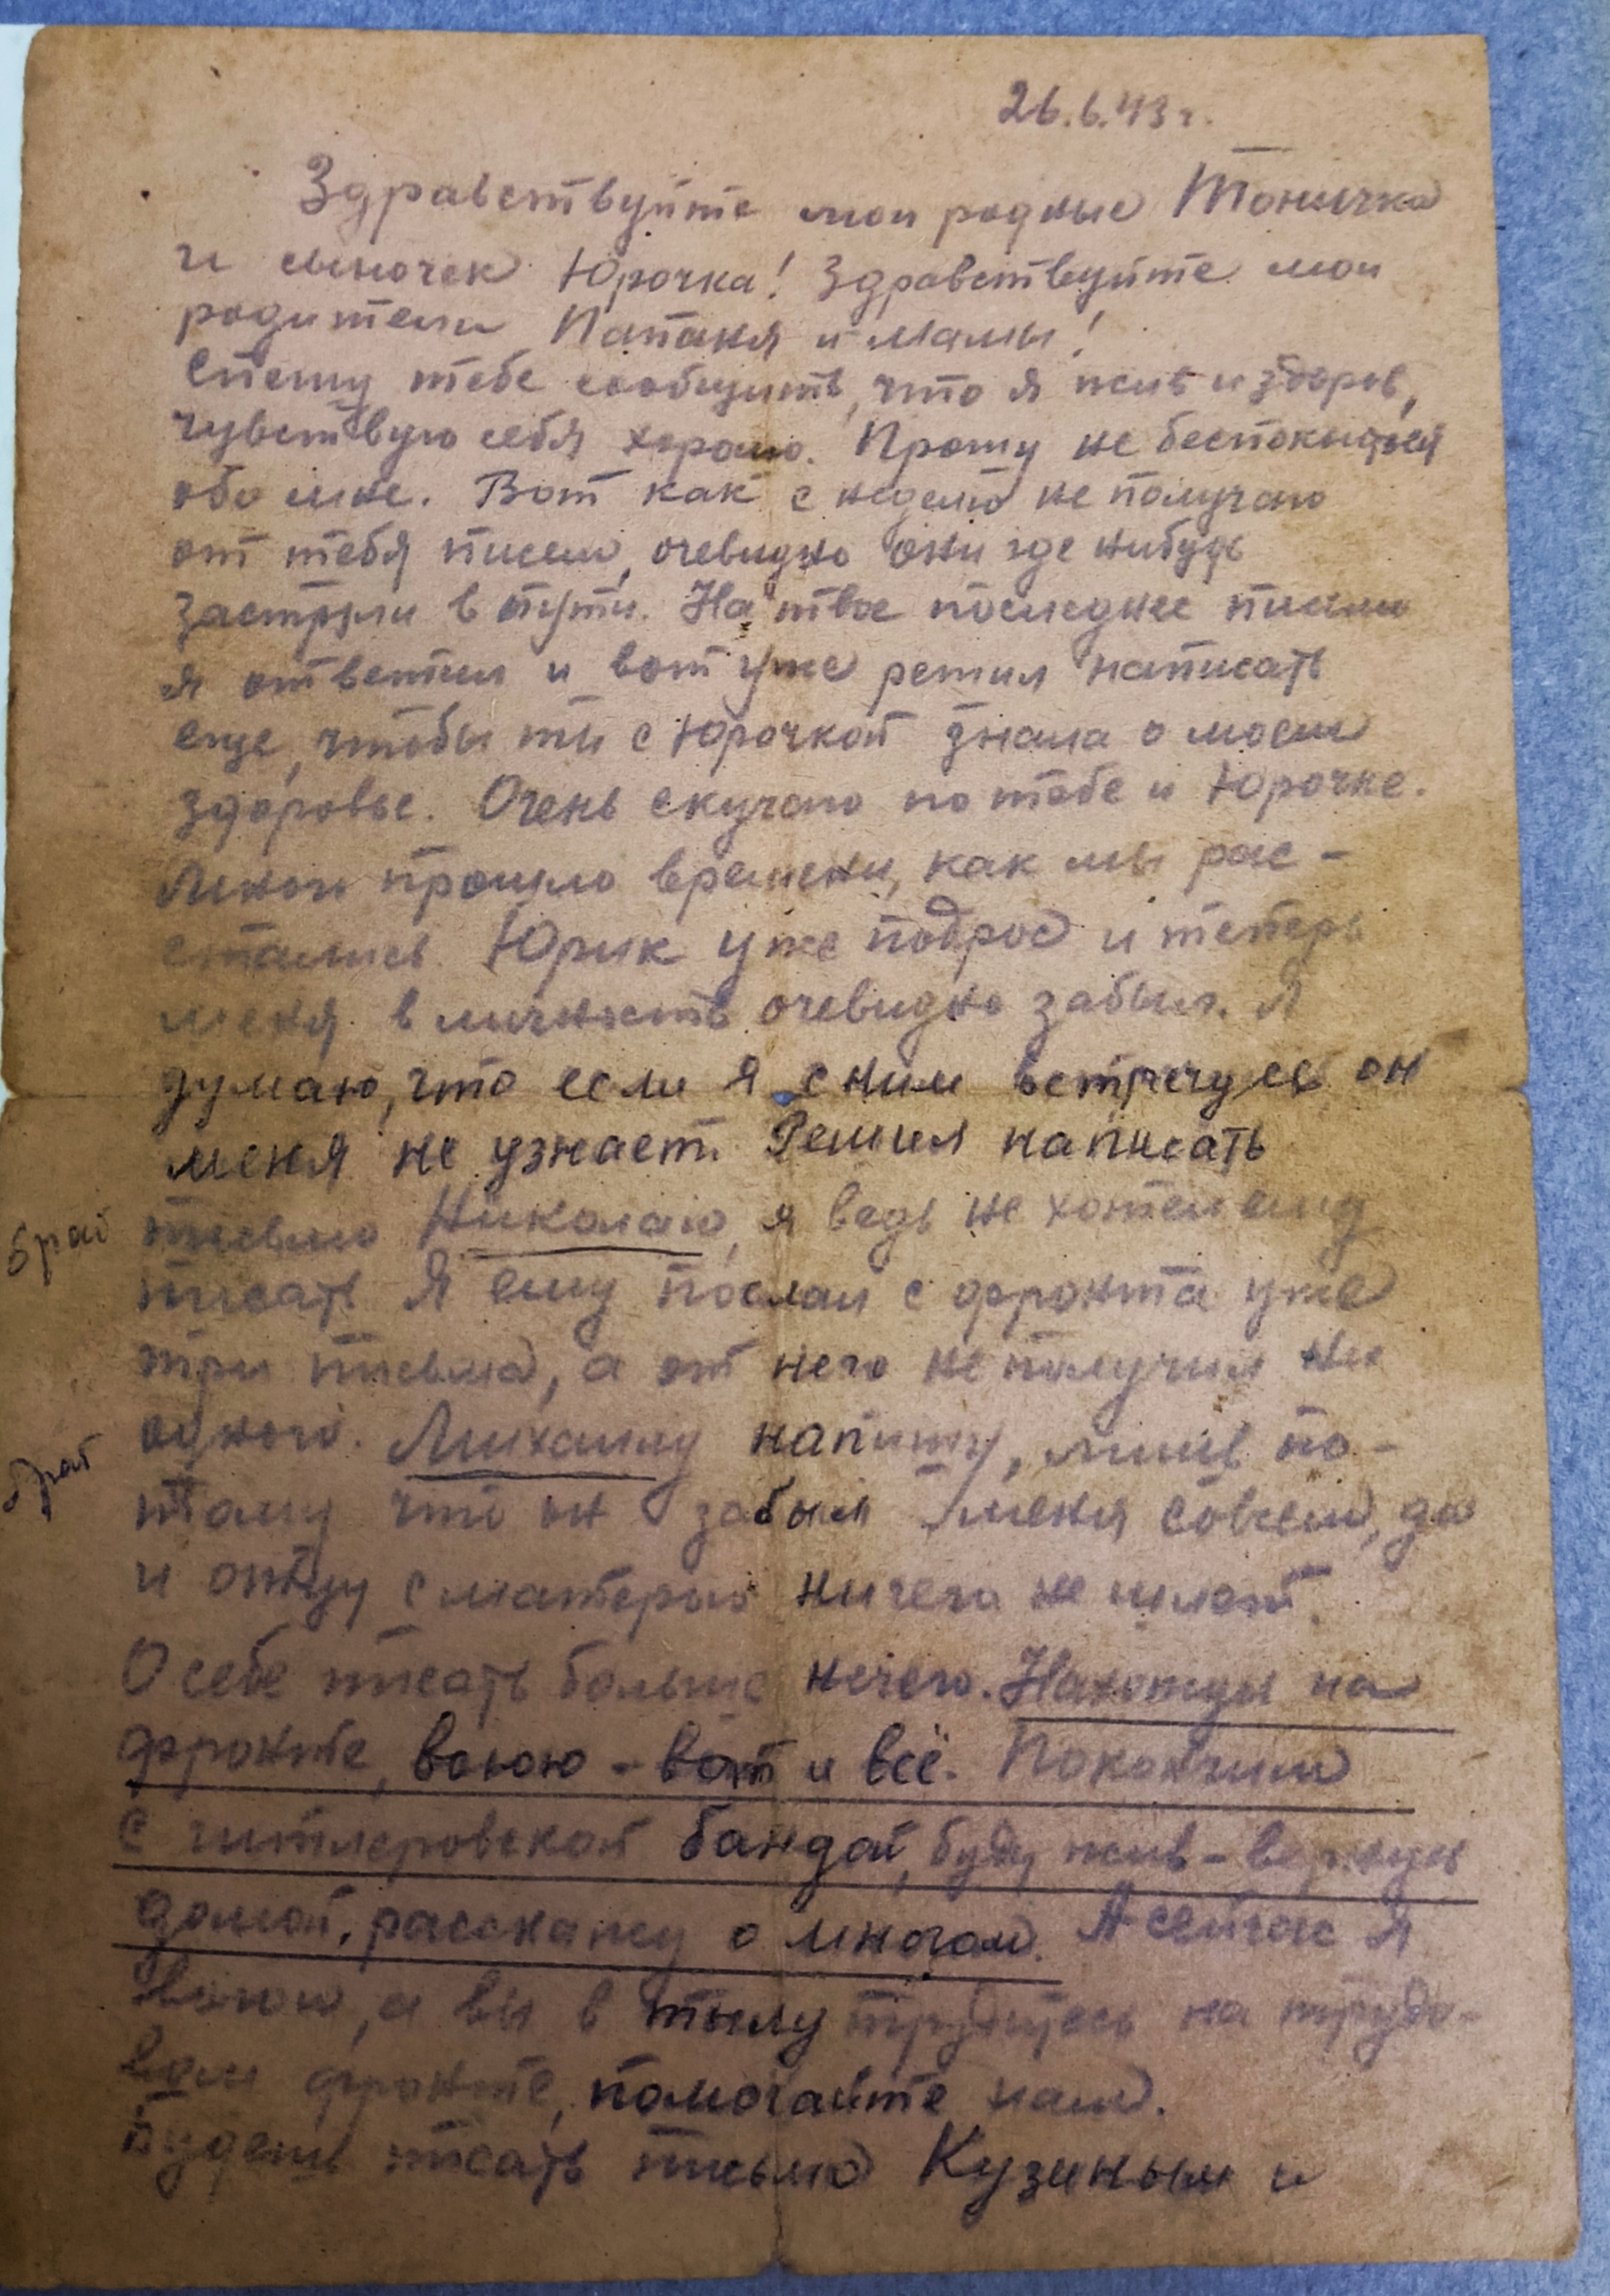 26.6.43 г.
Здравствуйте мои родные Тоничка
и сыночек Юрочка! Здравствуйте мои
родители Папаня и мамы!
Спешу тебе сообщить, что я жив и здоров,
чувствую себя хорошо. Прошу не беспокоиться
обо мне. Вот как с неделю не получаю
от тебя писем, очевидно они где нибудь
застряли в пути. На твое последнее письмо
я ответил и вот уже решил написать
еще, чтобы ты с Юрочкой знала о моем
здоровье. Очень скучаю по тебе и Юрочке.
Много прошло времени, как мы рас-
стались. Юрик уже подрос и теперь
меня в личность очевидно забыл. Я
думаю, что если я с ним встречусь он
меня не узнает. Решил написать
брат письмо Николаю, я ведь не хотел ему
писать. Я ему послал с фронта уже
три письма, а от него не получил ни
одного. Михаилу напишу, лишь по-
брат тому что он забыл меня совсем, да
и отцу с матерью ничего не шлет.
О себе писать больше нечего. Нахожусь на
фронте, воюю - вот и всё. Покончим
с гитлеровской бандой, буду жив - вернусь
домой, расскажу о многом. А сейчас я
воюю, а вы в тылу трудитесь на трудо-
вом фронте, помогайте нам.
Будешь писать письмо Кузиным и